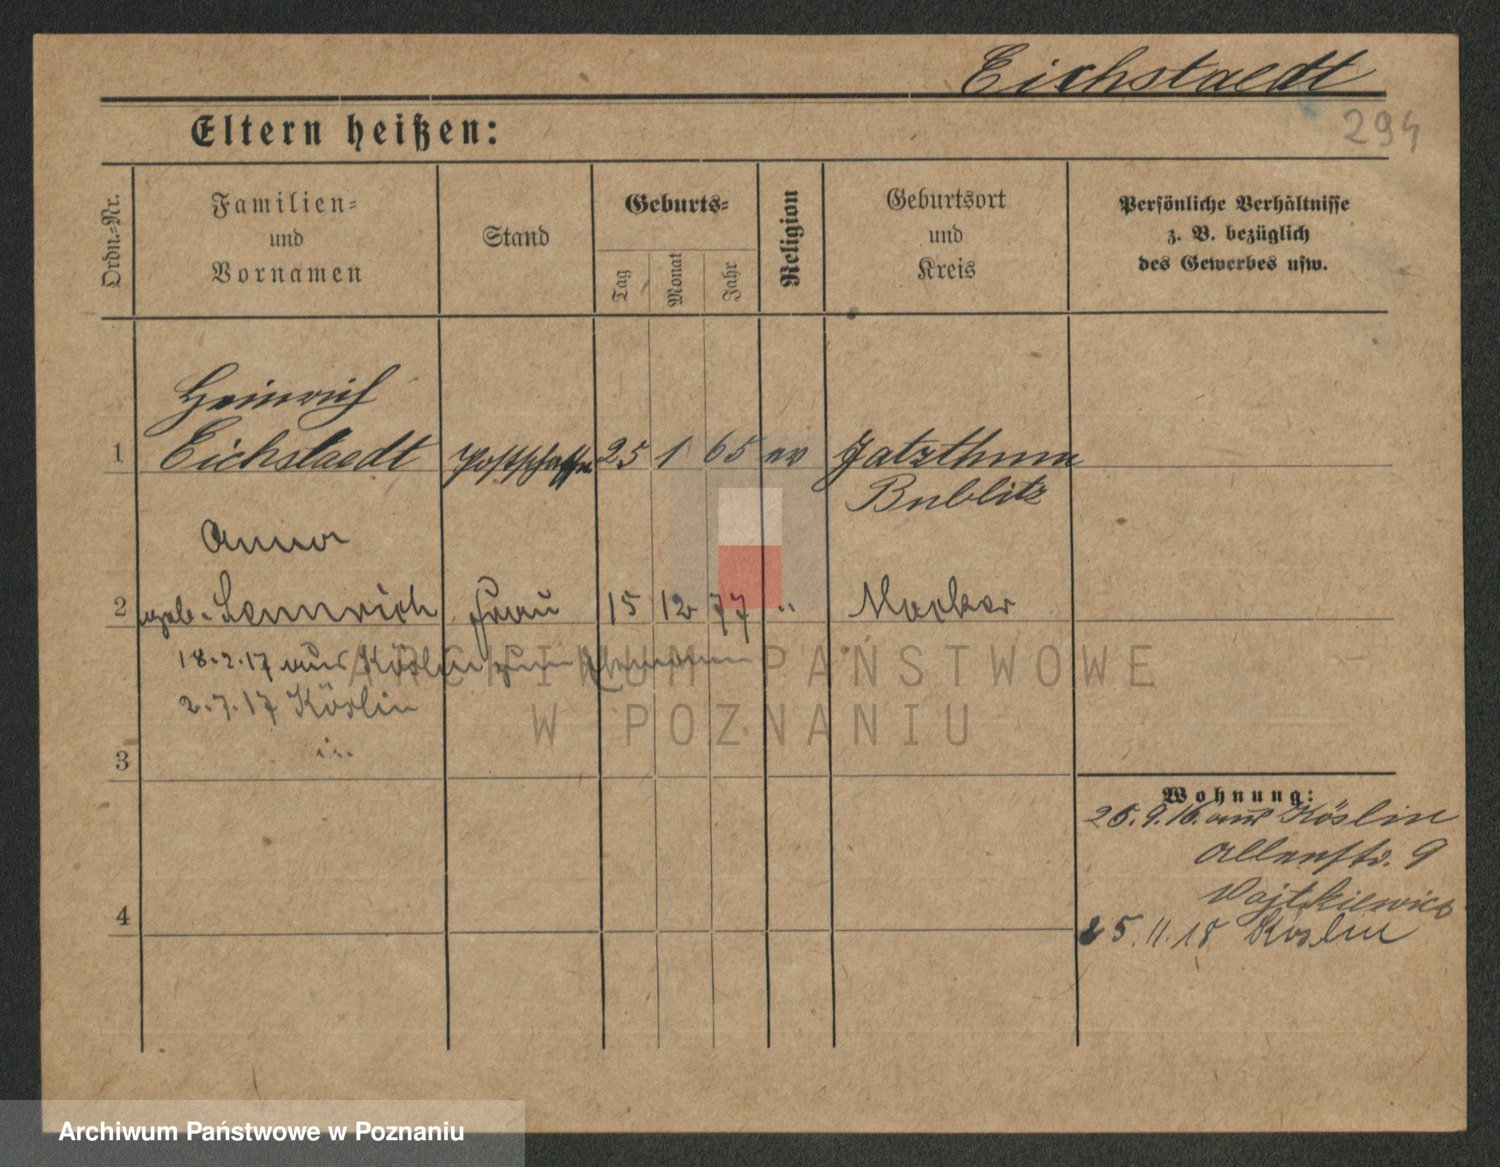 Eichstaedt
294
Eltern heißen:
Ordn.-Nr.
Familien-
und
Vornamen
Stand
Geburts-
Tag
Monat
Jahr
Religion
Geburtsort
und
Kreis
Persönliche Verhältnisse
z. B. bezüglich
des Gewerbes usw.
Heinrich
1 Eichstaedt Postschaffn 25 1 65 ev Jatzthum
Bublitz
Anna
2 geb. 15 12 77 " Macker
Frau
18.2.17 aus Köslin zum
2.7.17 Köslin
3
Wohnung:
25.9.16. aus Köslin
Allerstr. 9
Wojtkiewicz
4
25.11.18 Köslin
ARCHIWUM PAŃSTWOWE
W POZNANIU
Archiwum Państwowe w Poznaniu